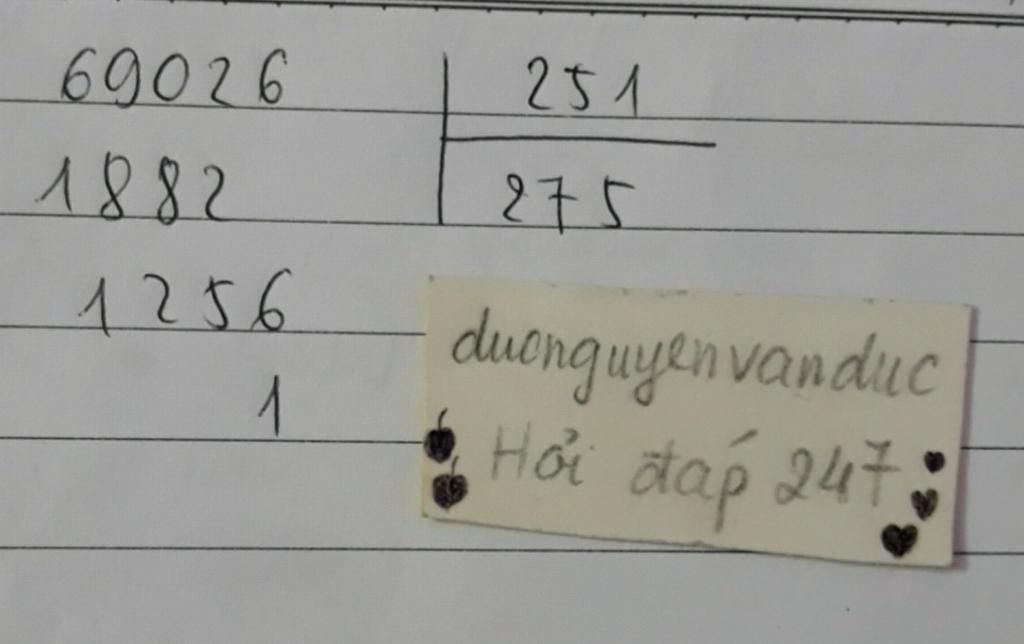 69026 251
1882 275
1256
1
ducnguyenvanduc
Hỏi đáp 247